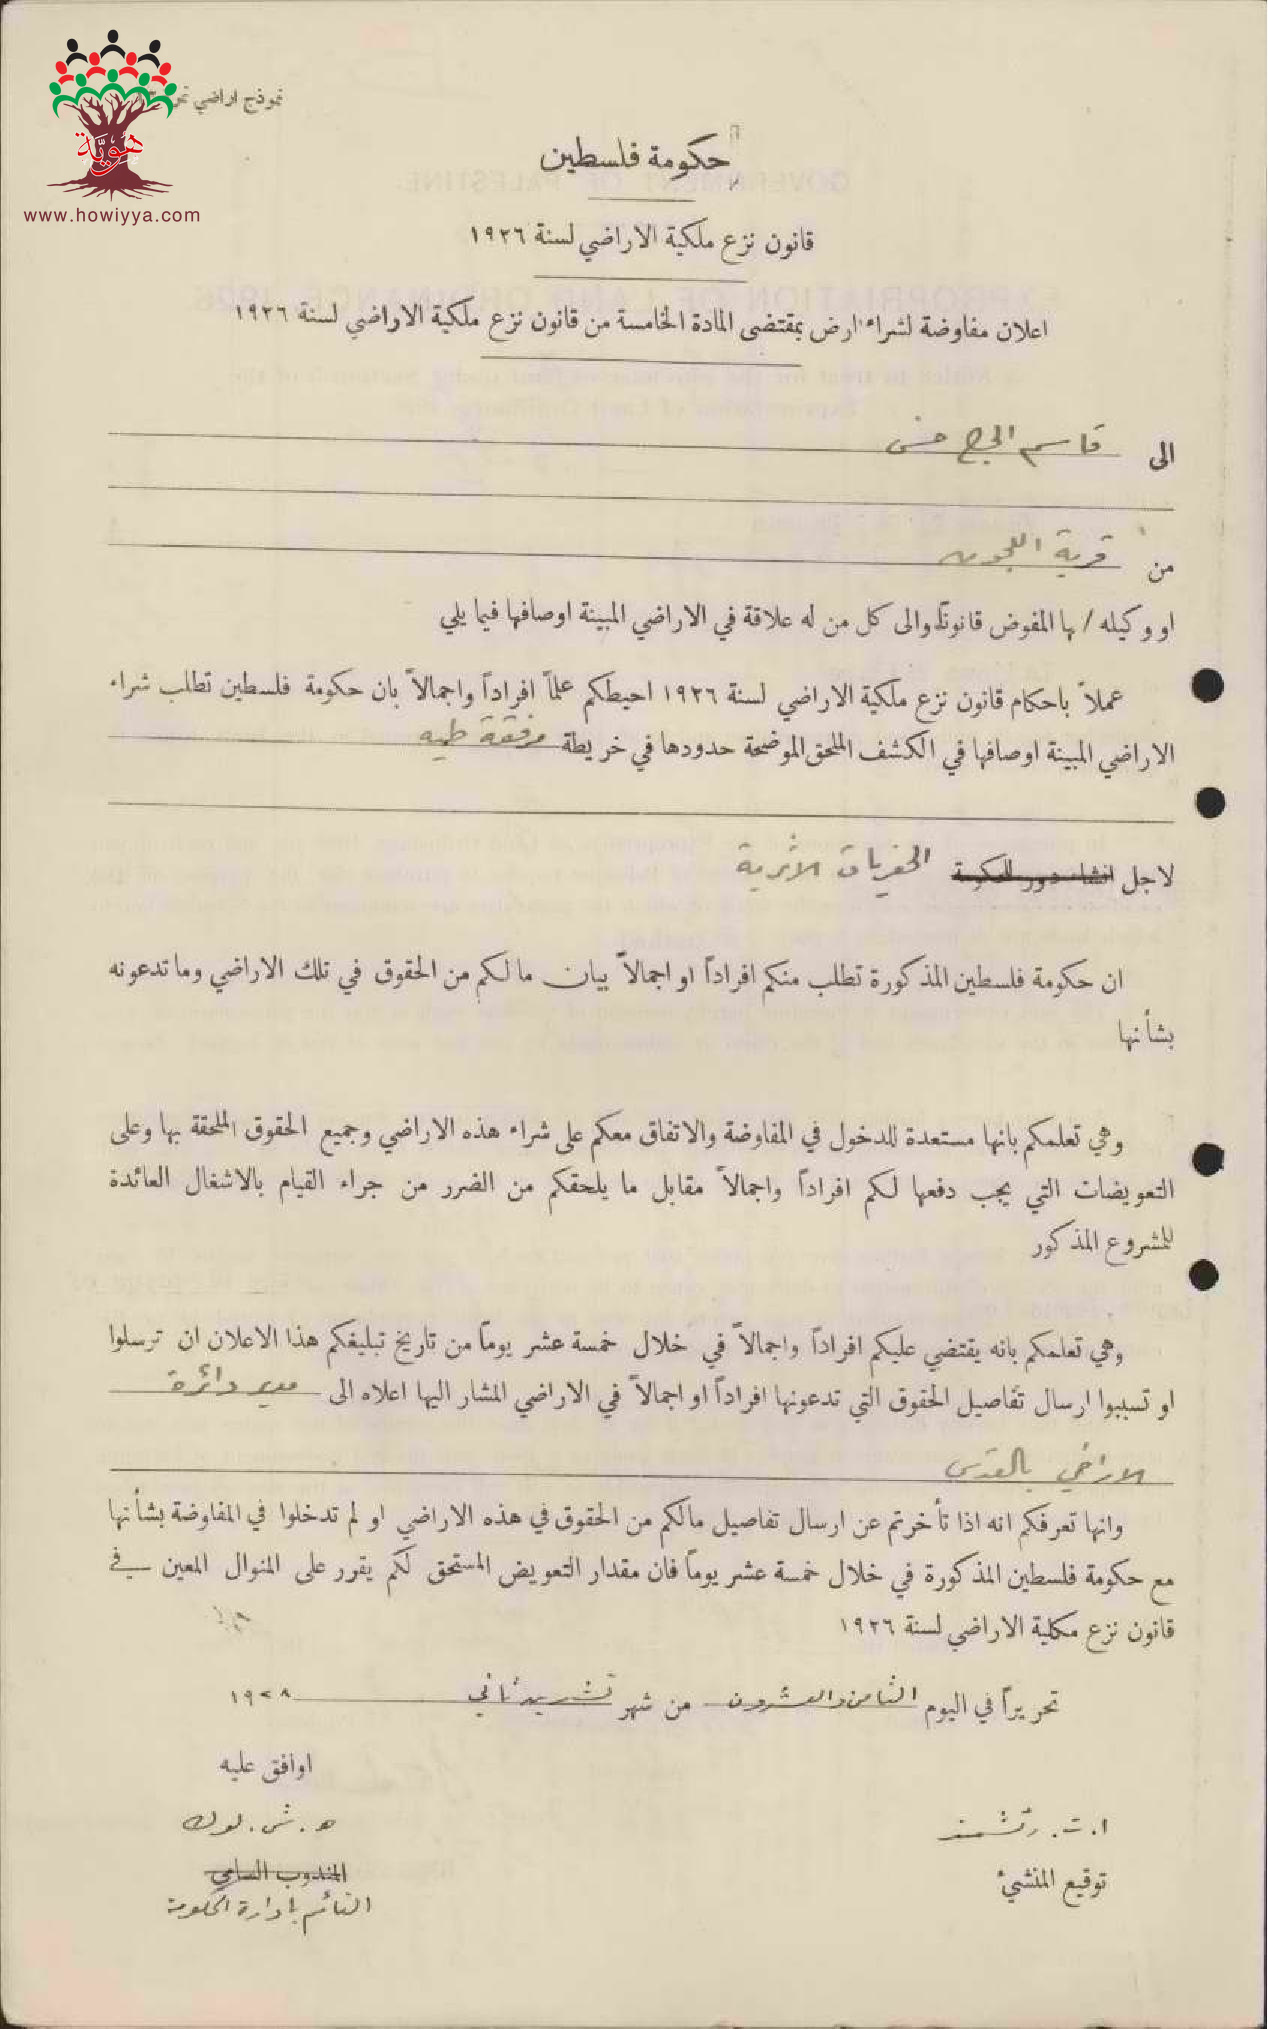 نموذج اراضي نمرة
هُويّة
www.howiyya.com
حكومة فلسطين
قانون نزع ملكية الاراضي لسنة ١٩٢٦
اعلان مفاوضة لشراء ارض بمقتضى المادة الخامسة من قانون نزع ملكية الاراضي لسنة ١٩٢٦
الى قاسم الحاج حسن
من قرية اللجون
او وكيله / بها المفوض قانوناً والى كل من له علاقة في الاراضي المبينة اوصافها فيما يلي
عملاً باحكام قانون نزع ملكية الاراضي لسنة ١٩٢٦ احيطكم علماً افراداً واجمالاً بان حكومة فلسطين تطلب شراء
الاراضي المبينة اوصافها في الكشف الملحق الموضحة حدودها في خريطة مرفقة طيه
لاجل انشاء دور للحكومة الحفريات الاثرية
ان حكومة فلسطين المذكورة تطلب منكم افراداً او اجمالاً بيان مالكم من الحقوق في تلك الاراضي وما تدعونه
بشأنها
وهي تعلمكم بانها مستعدة للدخول في المفاوضة والاتفاق معكم على شراء هذه الاراضي وجميع الحقوق الملحقة بها وعلى
التعويضات التي يجب دفعها لكم افراداً واجمالاً مقابل ما يلحقكم من الضرر من جراء القيام بالاشغال العائدة
للمشروع المذكور
وهي تعلمكم بانه يقتضي عليكم افراداً واجمالاً في خلال خمسة عشر يوماً من تاريخ تبليغكم هذا الاعلان ان ترسلوا
او تسببوا ارسال تفاصيل الحقوق التي تدعونها افراداً او اجمالاً في الاراضي المشار اليها اعلاه الى مدير دائرة
الاراضي بالقدس
وانها تعرفكم انه اذا تأخرتم عن ارسال تفاصيل مالكم من الحقوق في هذه الاراضي او لم تدخلوا في المفاوضة بشأنها
مع حكومة فلسطين المذكورة في خلال خمسة عشر يوماً فان مقدار التعويض المستحق لكم يقرر على المنوال المعين في
قانون نزع مكلية الاراضي لسنة ١٩٢٦
تحريراً في اليوم الثامن والعشرون من شهر تشرين ثاني ١٩٢٨
اوافق عليه
ا. ت. رتشمند
ه. ش. لوك
توقيع المنشئ
المندوب السامي
القائم بادارة الحكومة